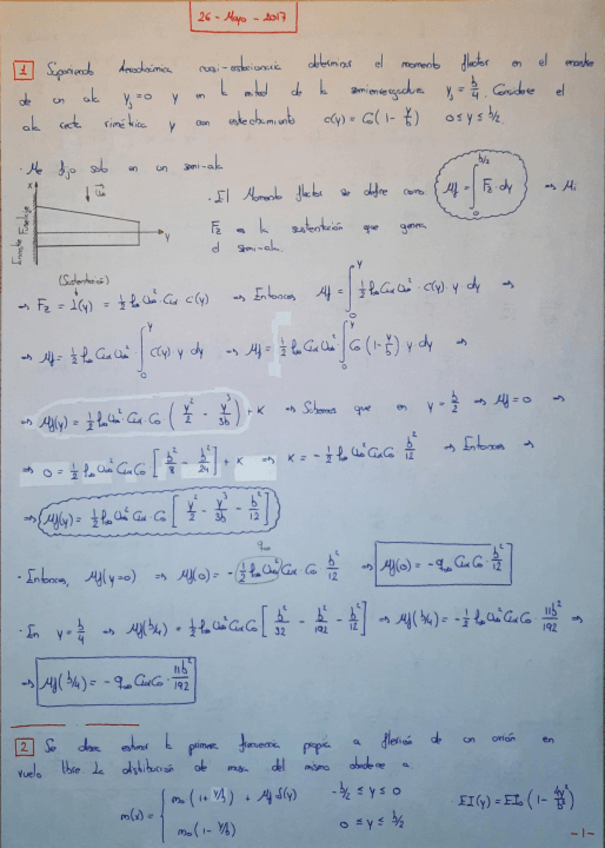 26 - Mayo - 2017
1 Suponiendo Aerodinámica cuasi-estacionaria determinar el momento flector en el encastre
de un ala y₁=0 y en la mitad de la semienvergadura y₂ = b/4. Considere el
ala recta simétrica y con estrechamiento c(y) = C₀(1 - y/b) 0 ≤ y ≤ b/2.
· Me fijo solo en un semi-ala
x U∞ y Encastre Fuselaje
· El Momento flector se define como Mf = ∫₀^{b/2} Fz·dy ⇒ Mi
Fz es la sustentación que genera
el semi-ala.
(Sustentación)
⇒ Fz = l(y) = 1/2 ρ∞ U∞² · Clα · c(y) ⇒ Entonces Mf = ∫₀^y 1/2 ρ∞ Clα U∞² · c(y) · y dy ⇒
⇒ Mf = 1/2 ρ∞ Clα U∞² · ∫₀^y c(y) · y dy ⇒ Mf = 1/2 ρ∞ Clα U∞² ∫₀^y C₀ (1 - y/b) y dy ⇒
⇒ Mf(y) = 1/2 ρ∞ U∞² · Clα · C₀ (y²/2 - y³/3b) + K ⇒ Sabemos que en y = b/2 ⇒ Mf = 0 ⇒
⇒ 0 = 1/2 ρ∞ U∞² Clα C₀ · [b²/8 - b²/24] + K ⇒ K = - 1/2 ρ∞ U∞² Clα C₀ b²/12 ⇒ Entonces ⇒
⇒ Mf(y) = 1/2 ρ∞ U∞² Clα · C₀ [y²/2 - y³/3b - b²/12]
q∞
· Entonces, Mf(y=0) ⇒ Mf(0) = - (1/2 ρ∞ U∞²) Clα · C₀ b²/12 ⇒ Mf(0) = - q∞ Clα C₀ · b²/12
· En y = b/4 ⇒ Mf(b/4) = 1/2 ρ∞ U∞² Clα C₀ [b²/32 - b²/192 - b²/12] ⇒ Mf(b/4) = - 1/2 ρ∞ U∞² Clα C₀ · 11b²/192 ⇒
⇒ Mf(b/4) = - q∞ Clα C₀ · 11b²/192
2 Se desea estimar la primera frecuencia propia a flexión de un avión en
vuelo libre. La distribución de masa del mismo obedece a:
m(x) = { m₀ (1 + y/b) + Mf δ(y) -b/2 ≤ y ≤ 0 · EI(y) = EI₀ (1 - 4y²/b²)
m₀ (1 - y/b) 0 ≤ y ≤ b/2
-1-